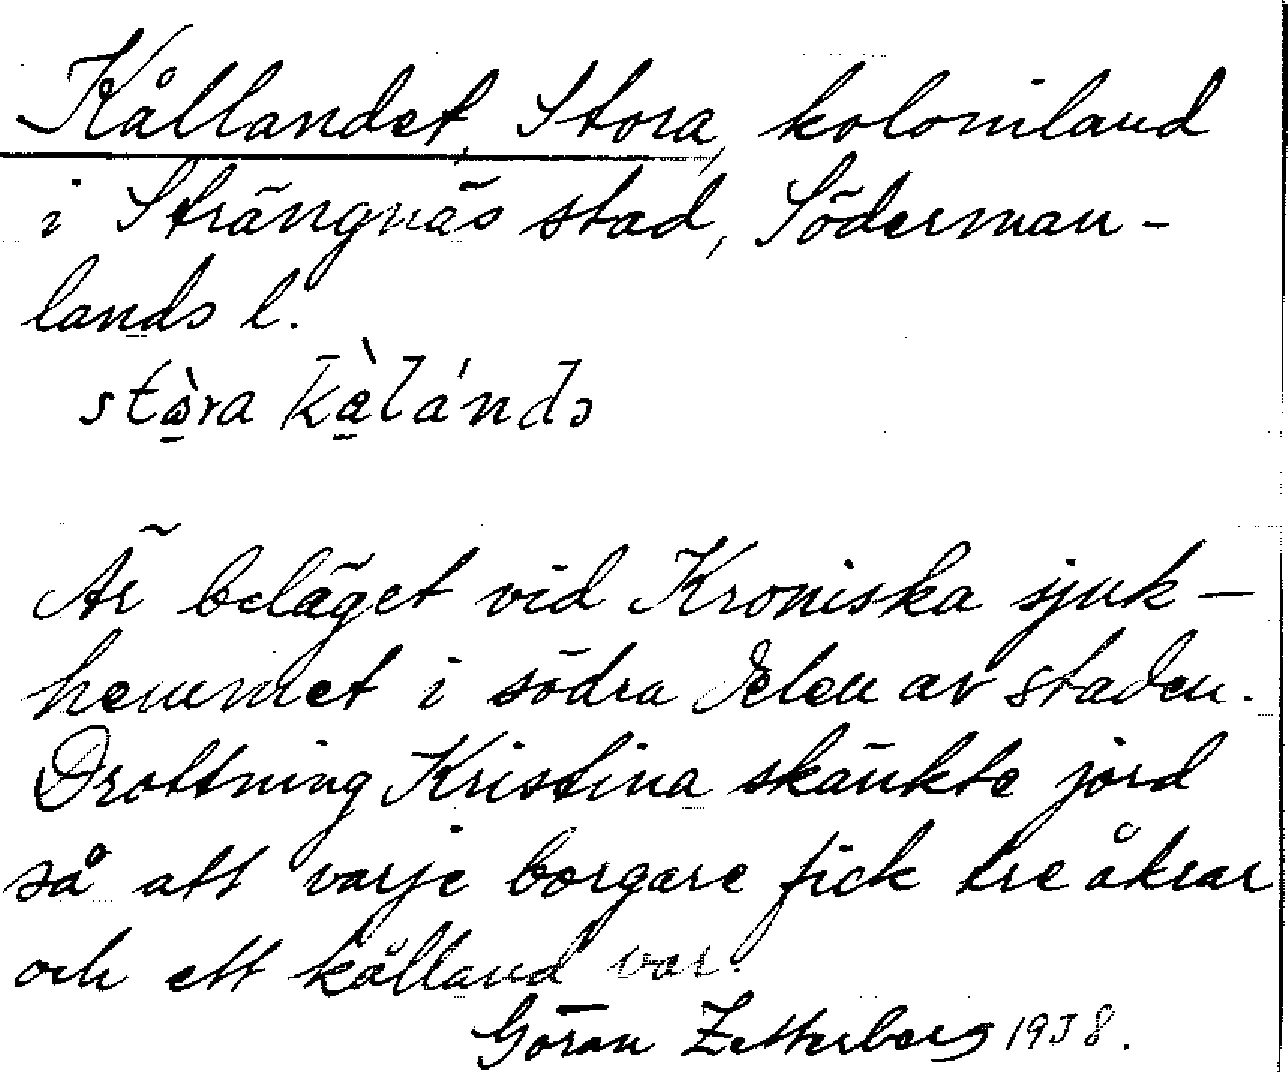 Kållandet, Stora, koloniland
i Strängnäs stad, Söderman-
lands l.
stora kålands
Är beläget vid Kroniska sjuk-
hemmet i södra delen av staden.
Drottning Kristina skänkte jord
så att varje borgare fick tre åkrar
och ett kålland var.
Göran Zetterberg 1938.